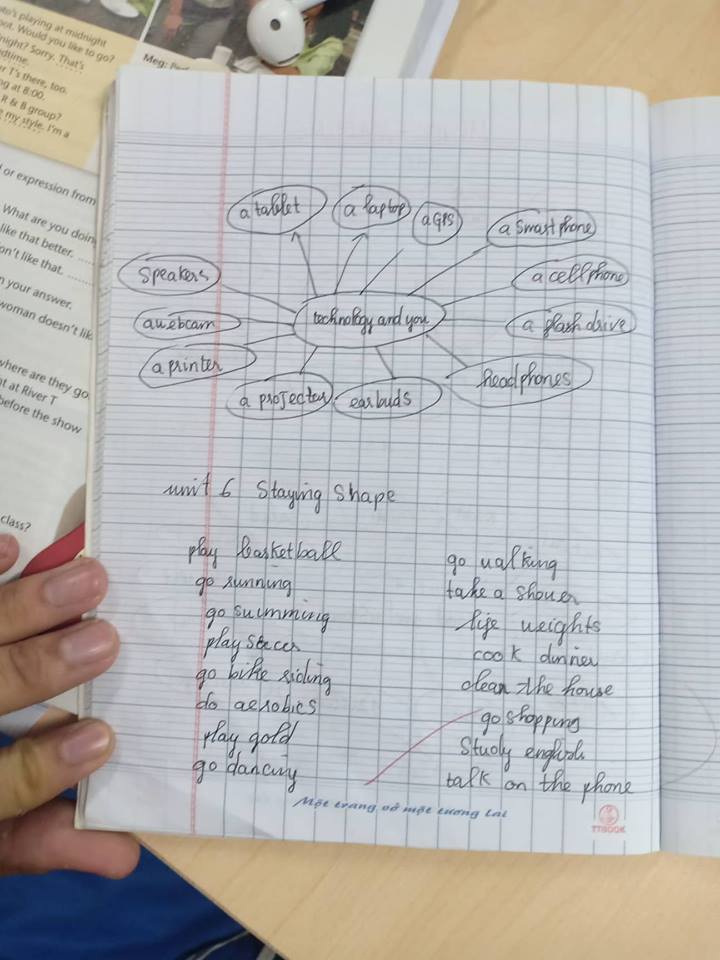 oto's playing at midnight
oot. Would you like to go?
night? Sorry. That's
dtime.
r T's there, too.
ng at 8:00.
R & B group?
my style. I'm a
Meg:
d or expression from
What are you doin
like that better.
on't like that.
n your answer.
woman doesn't lik
where are they go
nt at River T
before the show
class?
a tablet
a laptop
a GPS
a smartphone
speakers
a cellphone
a webcam
technology and you
a flash drive
a printer
headphones
a projector
earbuds
unit 6 Staying Shape
play basketball
go running
go swimming
play soccer
go bike riding
do aerobics
play gold
go dancing
go walking
take a shower
life weights
cook dinner
clean the house
go shopping
Study english
talk on the phone
Một trang vở một tương lai
TTBOOK